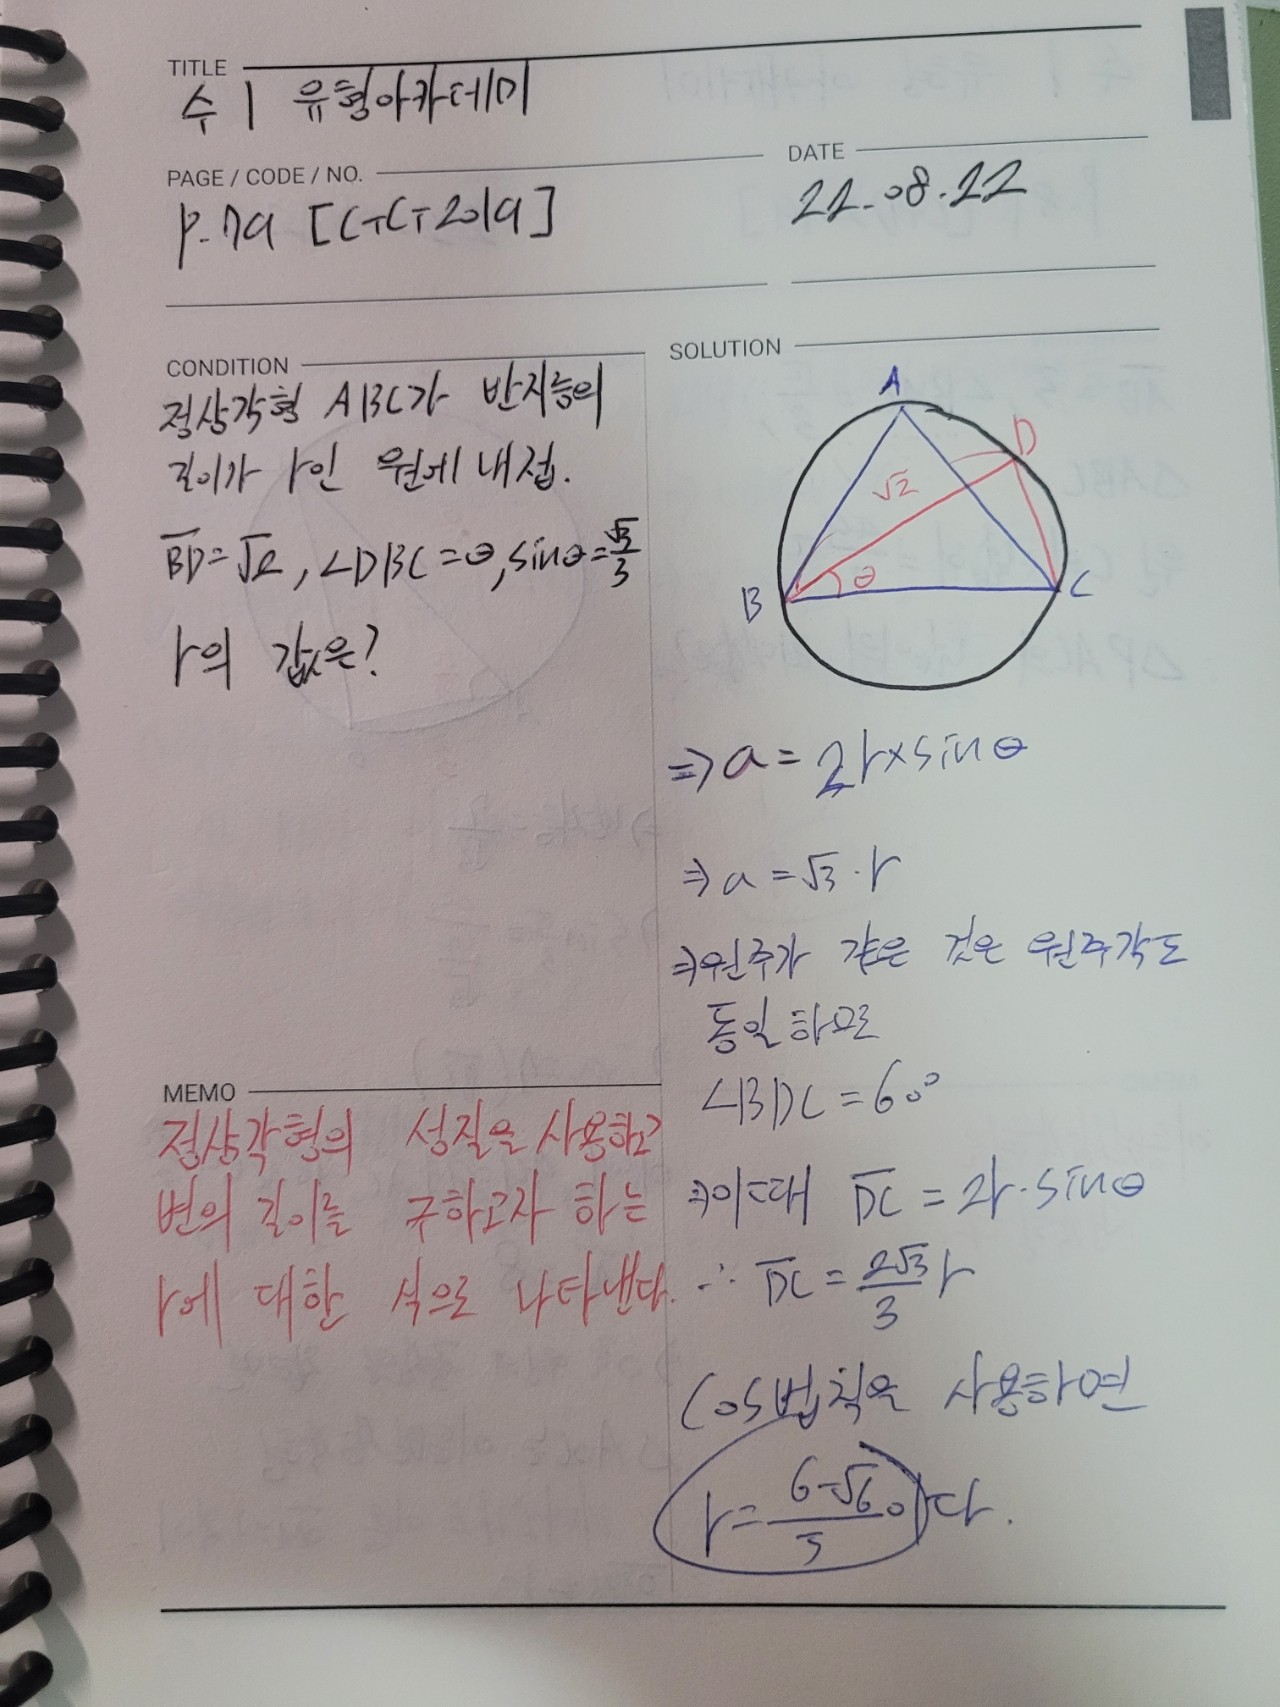 TITLE
수 1 유형아카데미
PAGE / CODE / NO.
DATE
P.79 [대표 2019]
22.08.22
CONDITION
정삼각형 ABC가 반지름의
길이가 r인 원에 내접.
BD=√2, ∠DBC=θ, sinθ=√3/3
r의 값은?
SOLUTION
A
D
√2
B
θ
C
⇒ a = 2r×sinθ
⇒ a = √3·r
⇒원주가 같은 것은 원주각도
동일하므로
∠BDC = 60°
⇒이때 DC = 2r·sinθ
∴ DC = 2√3/3 r
cos법칙을 사용하면
r = 6-√6/5 이다.
MEMO
정삼각형의 성질을 사용하고
변의 길이를 구하고자 하는
r에 대한 식으로 나타낸다.